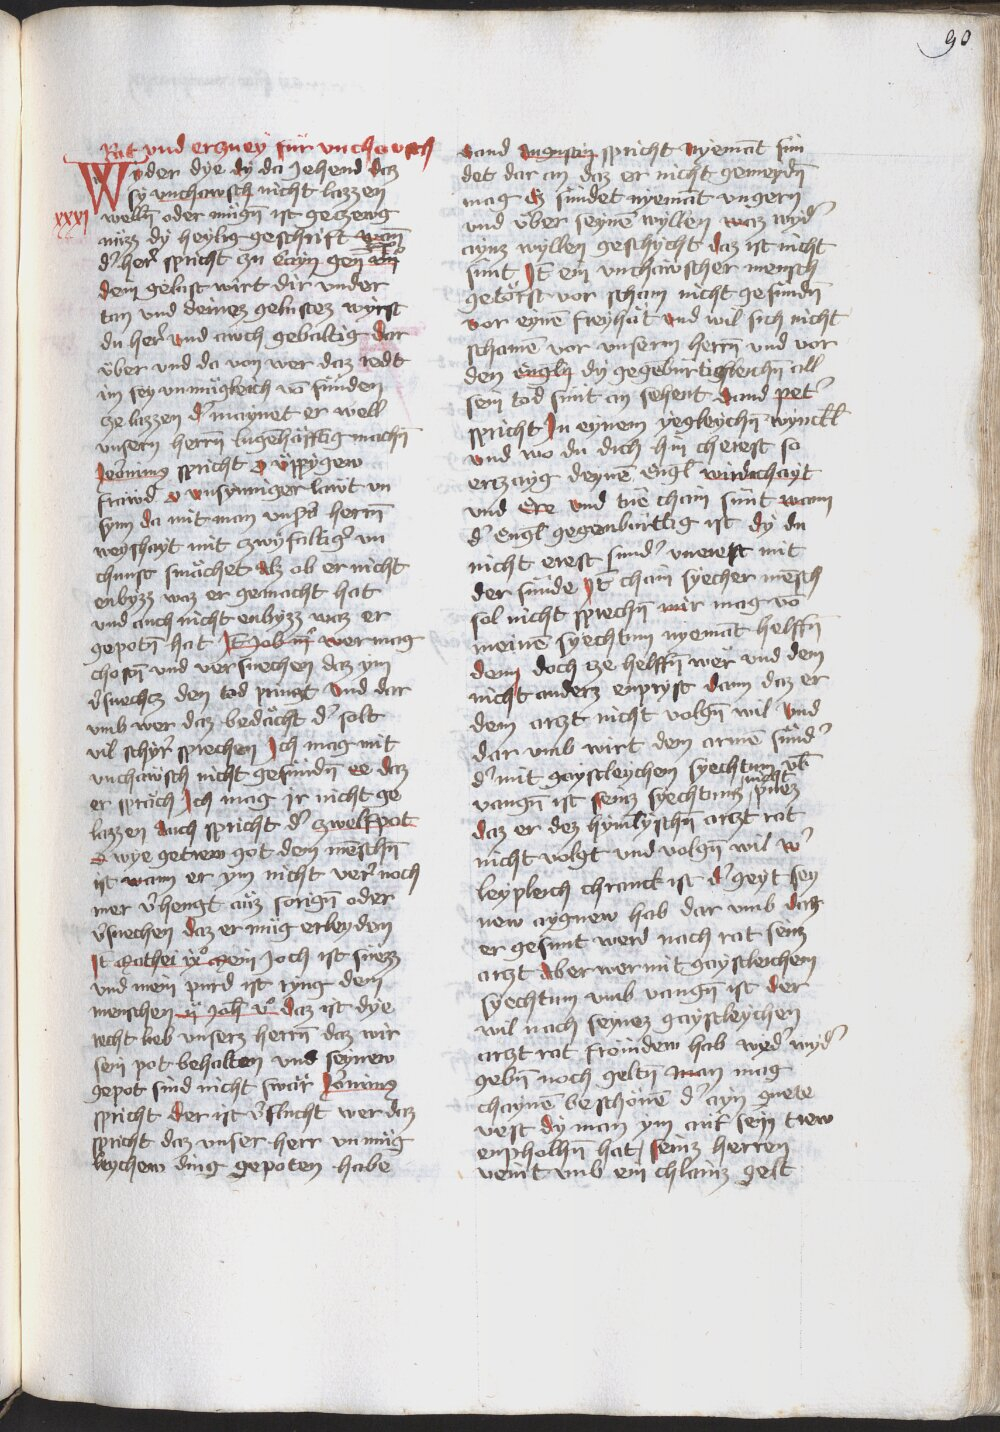 90
Rat vnd erczney für vnchawsch
Wider dye dy da Jehend daz
sy vnchawsch nicht lazzen
xxvj
welln̄ oder mügn̄ ist geczewg
nüzz dy heylig geschrift wan̄
d' her' spricht zu Cayn gen̄
dein gelust wirt dir vnder
tan vnd deinez gelustez wyrst
du her' vnd awch gebaltig dar
über vnd da von wer daz redt
im sey vnmügleich vō sünden
ze lazzen d' maynet er well
vnsern herrn̄ lugēhäfftig machn̄
Jeronimus spricht O üppygew
frawd O vnsynniger lawt vn
synn da mit man vnsers herrn̄
weyshayt mit zwyfaltig' vn
chunst smächet als ob er nicht
enbyzz waz er gemacht hat
vnd auch nicht enbyzz waz er
gepotn̄ hat It Job iiij° wer mag
chosn̄ vnd versuechen daz ym
v'suechez den tod pringt Vnd dar
vmb wer daz bedächt d' solt
vil schyr' sprechen Ich mag mit
vnchawsch nicht gesündn̄ ee daz
er spräch Ich mag ir nicht ge
lazzen Auch spricht d' zwelfpot
O wye getrew got dem mēschn̄
ist wann er ym nicht ver' noch
mer v'hengt auz sorign̄ oder
v'suechen daz er müg erleyden
It Mathei ix° Mein Joch ist suezz
vnd mein purd ist ryng dem
menschen ij Joh v° daz ist dye
recht lieb vnsers herrn̄ daz wir
sein pot behalten vnd seynew
gepot sind nicht swär Jeronimus
spricht Der ist v'flucht wer daz
spricht daz vnser herr vnmüg
leychew ding gepoten habe
Sand Augustin spricht Nyemāt sün
det dar an daz er nicht gemeydn̄
mag Ez sündet nyemāt vngern
vnd über seynē wyllen waz wyd'
aynz wyllen geschycht daz ist nicht
sünt It ein vnchawscher mensch
getörst vor scham nicht gesündn̄
vor eynē freyhät vnd wil sich nicht
schamē vor vnserm herrn̄ vnd vor
den Engln̄ dy gegēburtigleichn̄ all
sein tod sünt an sehent Sand pet'
spricht In eynem yegleychn̄ wynckl
vnd wo du dich hin cherest so
erczayg deynē Engl wirdichayt
vnd Ere vnd tuē cham sünt wann
d' Engl gegenburttig ist dy du
nicht erest sund' vnerest mit
der sünde It chain syecher mēsch
sol nicht sprechn̄ mir mag vō
meinē syechtum nyemāt helffn̄
dem doch ze helffn̄ wer' vnd dem
nicht anders enpryst dann daz er
dem arczt nicht volgn̄ wil Vnd
dar vmb wirt dem armē sünd'
d' mit gaystleychen syechtum vb'
vangn̄ ist seinz syechtumz nicht puez
daz er dez hymlyschn̄ arczt rat
nicht volgt vnd volgn̄ wil W'
leypleich chranck ist d' geyt sey
new aygnew hab dar vmb daz
er gesunt werd nach rat seinz
arczt Aber wer mit gaystleichem
syechtum vmb vangn̄ ist der
wil nach seynez gaystleychen
arczt rat frömdew hab wed' wyd'
gebn̄ noch geltn̄ Man mag
chaynē beschönē d' ayn guete
vest dy man ym auf sein trew
enpholhn̄ hat seinz herren
veint vmb ein chlainz gelt